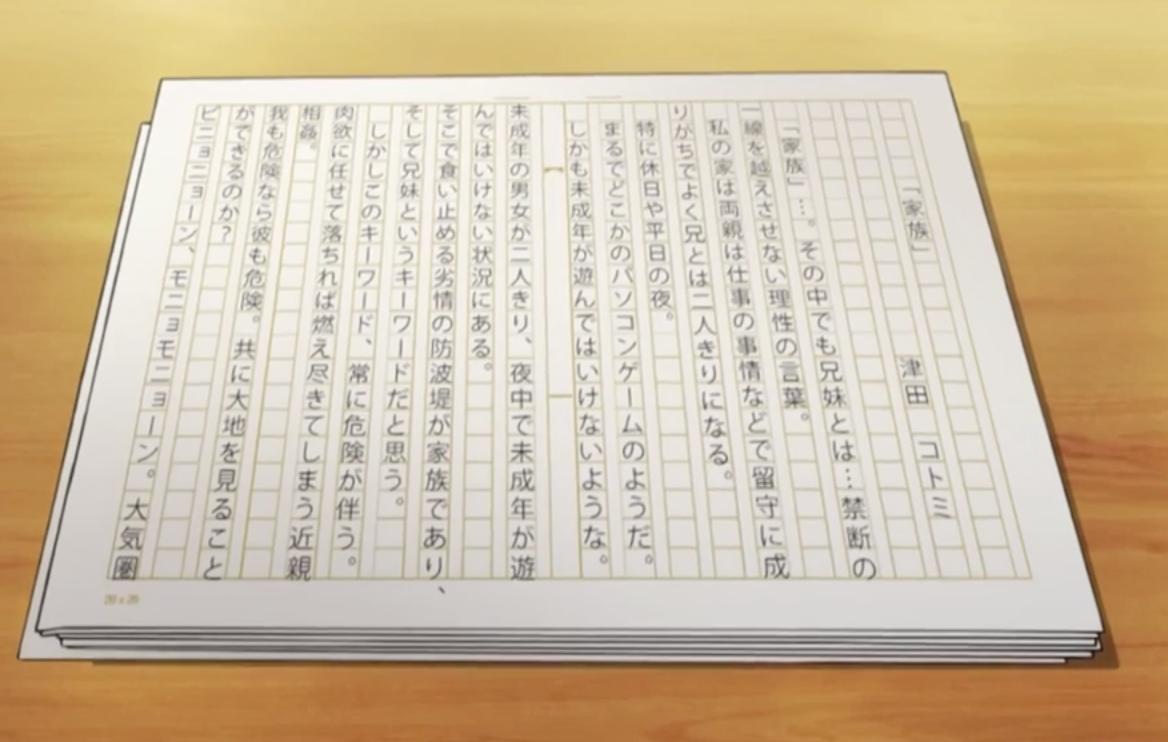 「家族」
津田 コトミ
「家族」…。その中でも兄妹とは…禁断の
一線を越えさせない理性の言葉。
私の家は両親は仕事の事情などで留守に成
りがちでよく兄とは二人きりになる。
特に休日や平日の夜。
まるでどこかのパソコンゲームのようだ。
しかも未成年が遊んではいけないような。
未成年の男女が二人きり、夜中で未成年が遊
んではいけない状況にある。
そこで食い止める劣情の防波堤が家族であり、
そして兄妹というキーワードだと思う。
しかしこのキーワード、常に危険が伴う。
肉欲に任せて落ちれば燃え尽きてしまう近親
相姦。
我も危険なら彼も危険。共に大地を見ること
ができるのか?
ピニョニョーン、モニョモニョーン。大気圏